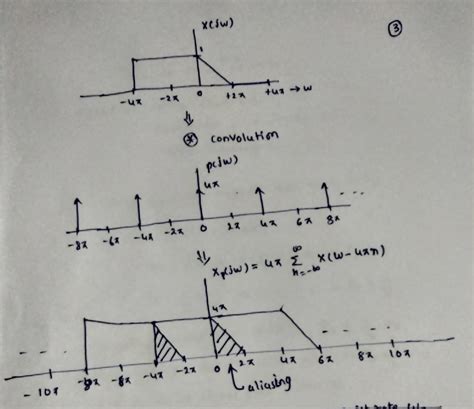 ③
X(jw)
1
-4π -2π 0 +2π +4π → w
⇓
⊛ convolution
p(jw)
4π
-8π -6π -4π -2π 0 2π 4π 6π 8π
⇓ Xp(jw) = 4π ∑ n=-∞ ∞ X(w-4πn)
4π
-10π -8π -8π -4π -2π 0 2π 4π 6π 8π 10π
aliasing